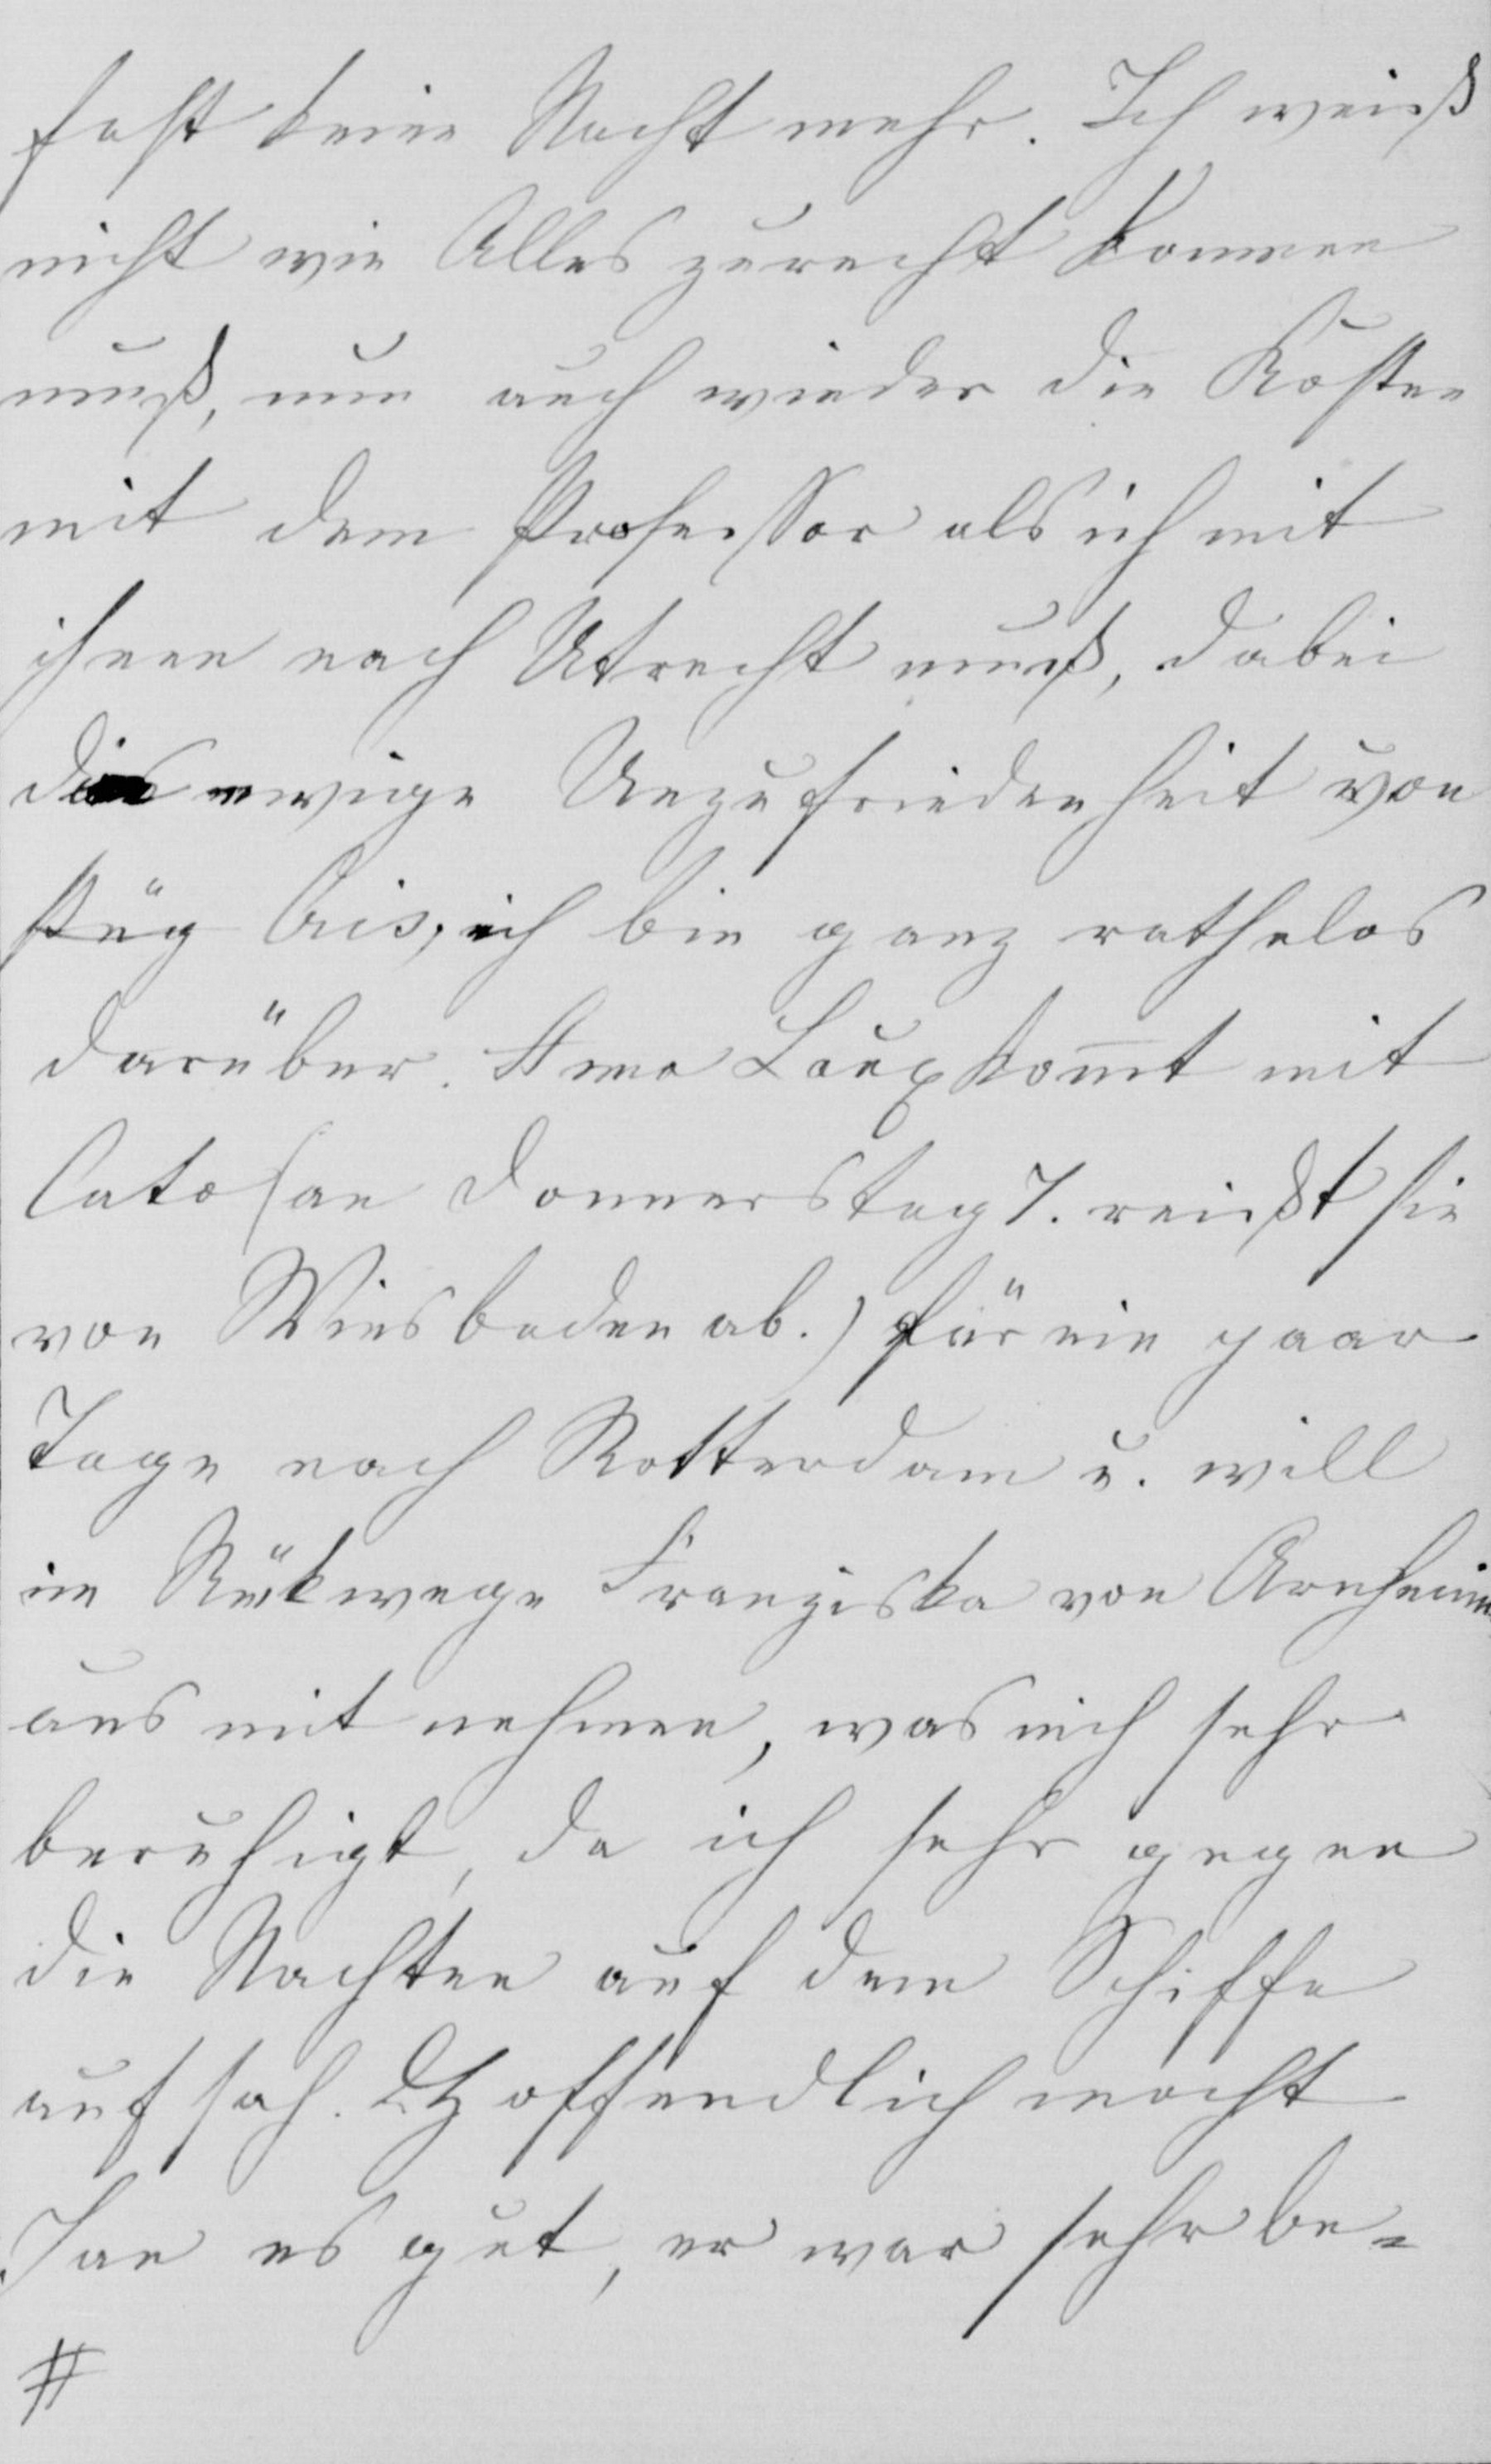 fast keine Nacht mehr. Ich weiß
nicht wie Alles zurecht kommen
muß, nun auch wieder die Kosten
mit dem Professor als ich mit
ihnen nach Utrecht muß, dabei
die ewige Unzufriedenheit von
ich bin ganz rathelos
darüber. Anna kom̅t mit
Cato (am Donnerstag 7. reißt sie
von Wiesbaden ab.) für ein paar
Tage nach Rotterdam u. will
im Rükwege Franziska von Arnheim
aus mit nehmen, was mich sehr
beruhigt, da ich sehr gegen
die Nachten auf dem Schiffe
auf sah. Hoffendlich macht
Jan es gut, er war sehr be=
#